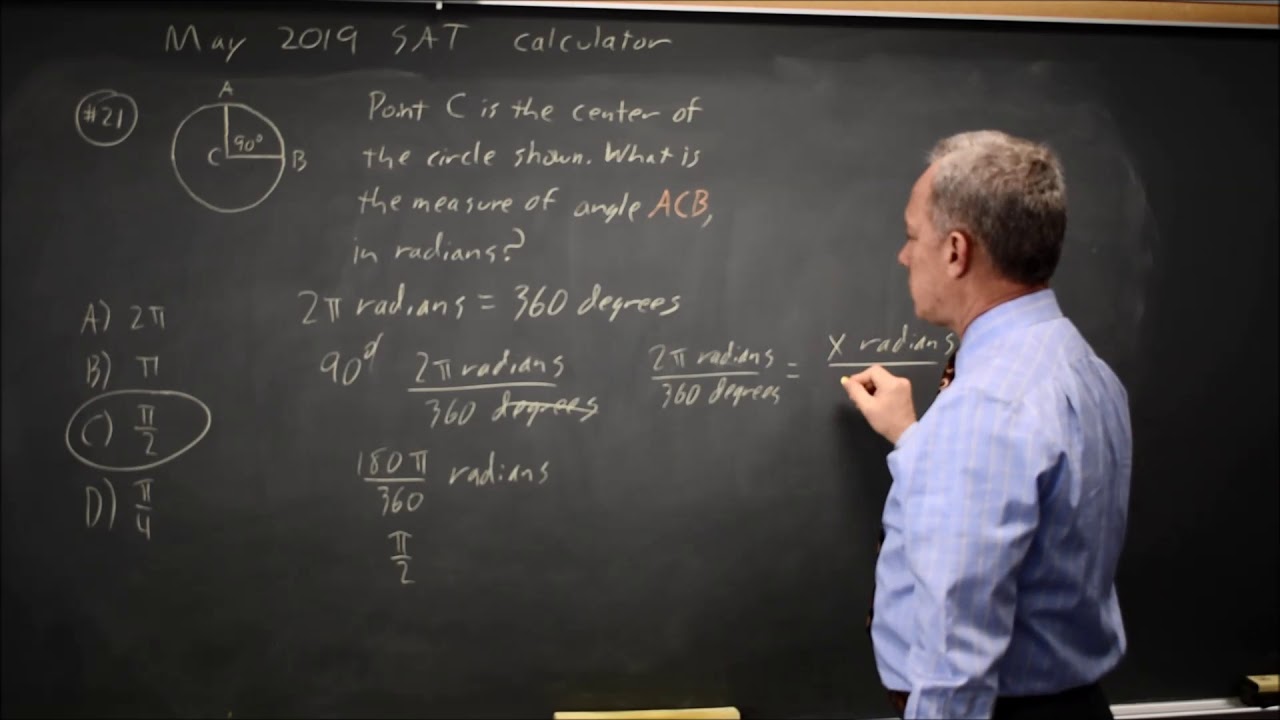 May 2019 SAT calculator
#21
A
90°
C
B
Point C is the center of
the circle shown. What is
the measure of angle ACB,
in radians?
A) 2π
B) π
C) π/2
D) π/4
2π radians = 360 degrees
90° 2π radians
360 degrees
180π radians
360
π
2
2π radians = x radians
360 degrees